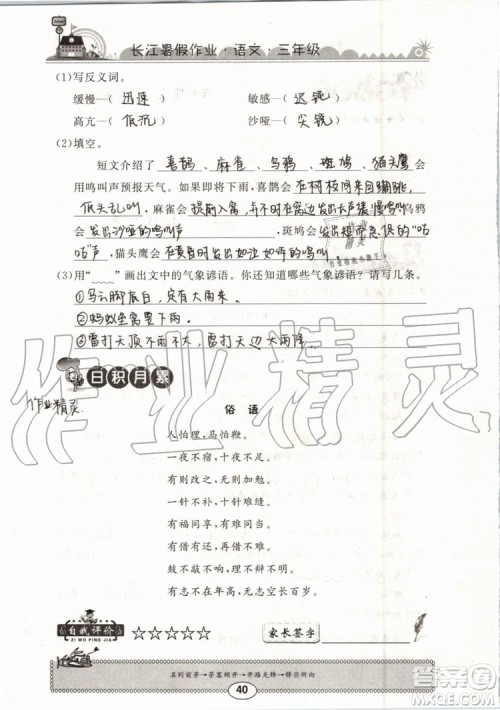 长江暑假作业·语文·三年级
(1)写反义词。
缓慢—(迅速) 敏感—(迟钝)
高亢—(低沉) 沙哑—(尖锐)
(2)填空。
短文介绍了喜鹊、麻雀、乌鸦、斑鸠、猫头鹰会
用鸣叫声预报天气。如果即将下雨,喜鹊会在树枝间来回蹦跳,
低头乱叫,麻雀会提前入窝,并在窝边发出大声缓慢鸣叫,乌鸦
会发出沙哑的鸣叫声,斑鸠会发出
咕”声,猫头鹰会在黄昏时发出如泣如诉的鸣叫。
(3)用“﹏﹏”画出文中的气象谚语。你还知道哪些气象谚语?请写几条。
①乌云脚底白,定有大雨来。
②蚂蚁垒窝要下雨。
③雷打天顶不雨不大,雷打天边大雨降。
日积月累
作业精灵
俗语
人怕理,马怕鞭。
一夜不宿,十夜不足。
有则改之,无则加勉。
一针不补,十针难缝。
有福同享,有难同当。
有借有还,再借不难。
鼓不敲不响,理不辩不明。
有志不在年高,无志空长百岁。
自我评价
ZI WO PING JIA
☆☆☆☆☆
家长签字
名列前茅→茅塞顿开→开路先锋→锋芒所向
40
作业精灵
答案圈
MXQE.COM